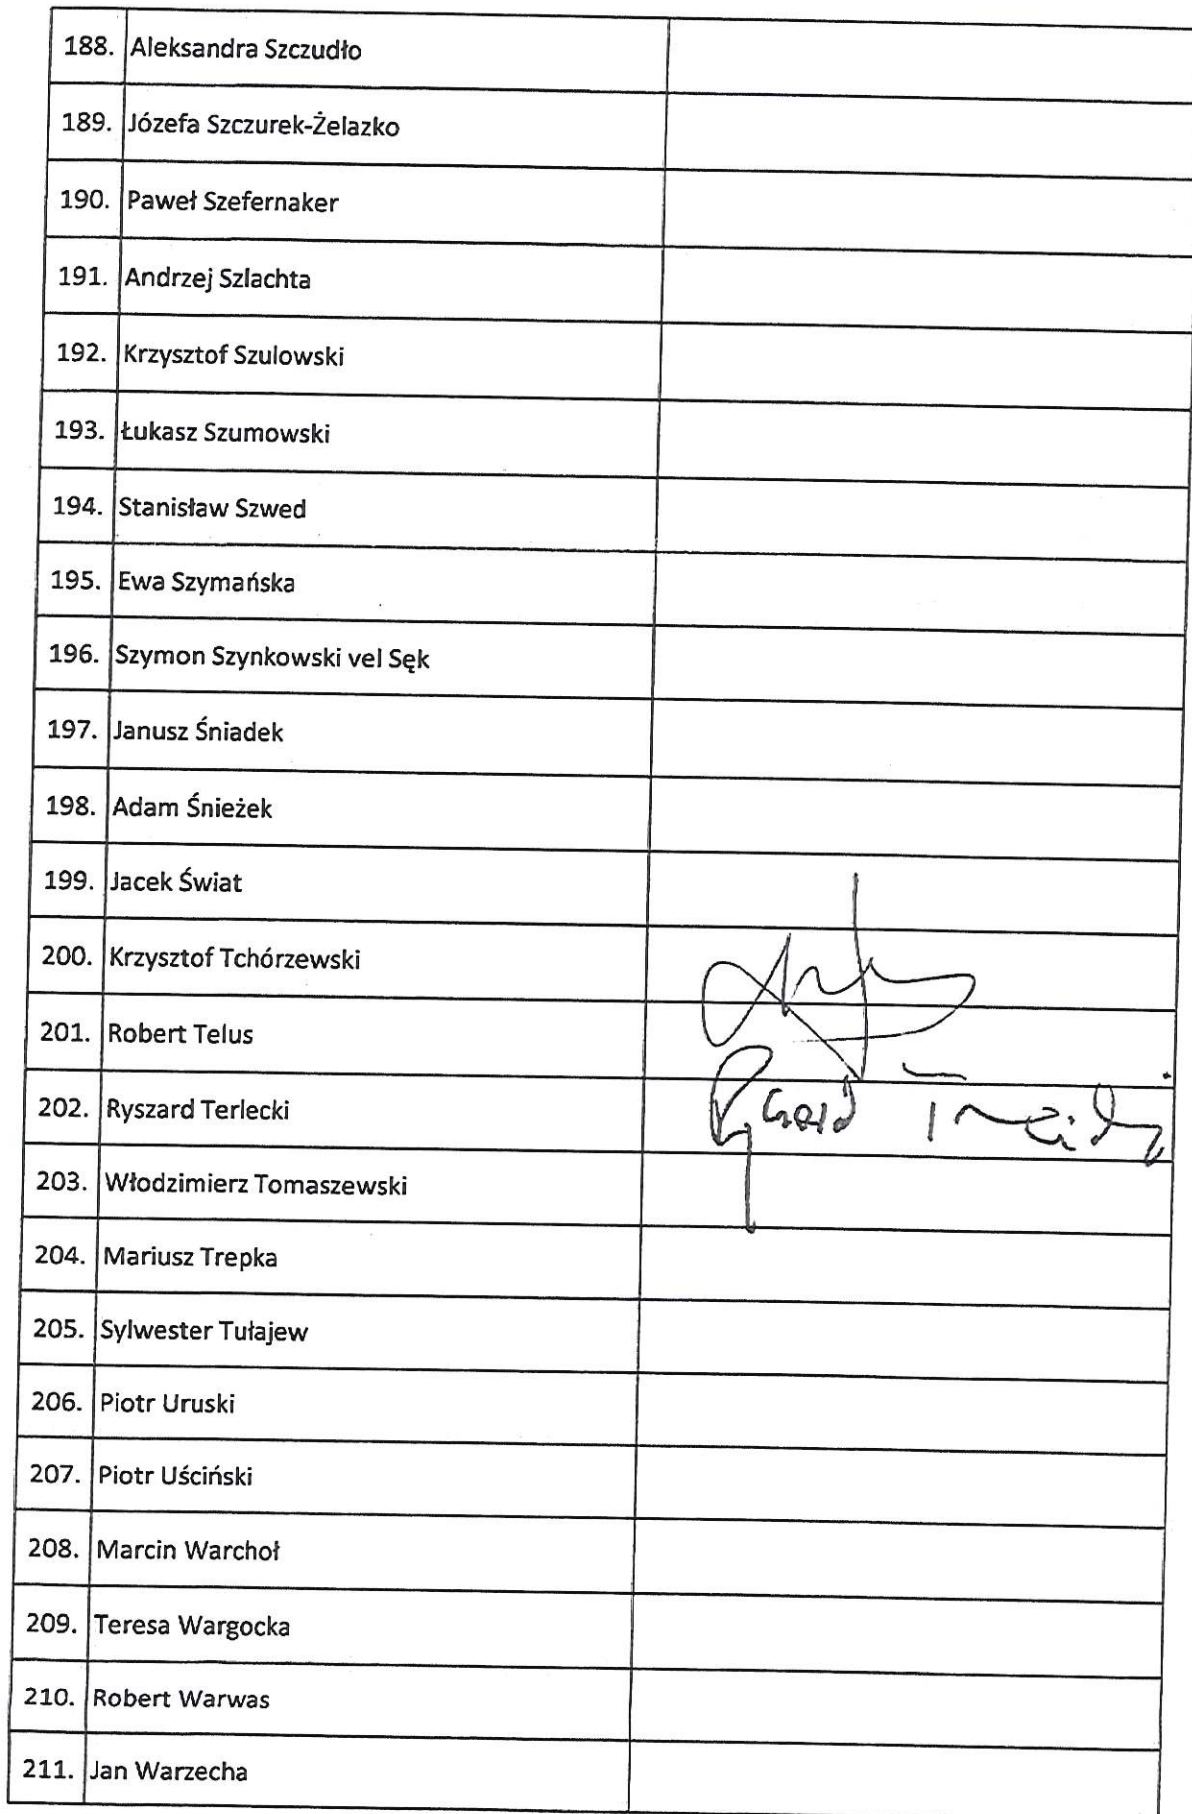 188. Aleksandra Szczudło
189. Józefa Szczurek-Żelazko
190. Paweł Szefernaker
191. Andrzej Szlachta
192. Krzysztof Szulowski
193. Łukasz Szumowski
194. Stanisław Szwed
195. Ewa Szymańska
196. Szymon Szynkowski vel Sęk
197. Janusz Śniadek
198. Adam Śnieżek
199. Jacek Świat
200. Krzysztof Tchórzewski
201. Robert Telus
202. Ryszard Terlecki
203. Włodzimierz Tomaszewski
204. Mariusz Trepka
205. Sylwester Tułajew
206. Piotr Uruski
207. Piotr Uściński
208. Marcin Warchoł
209. Teresa Wargocka
210. Robert Warwas
211. Jan Warzecha